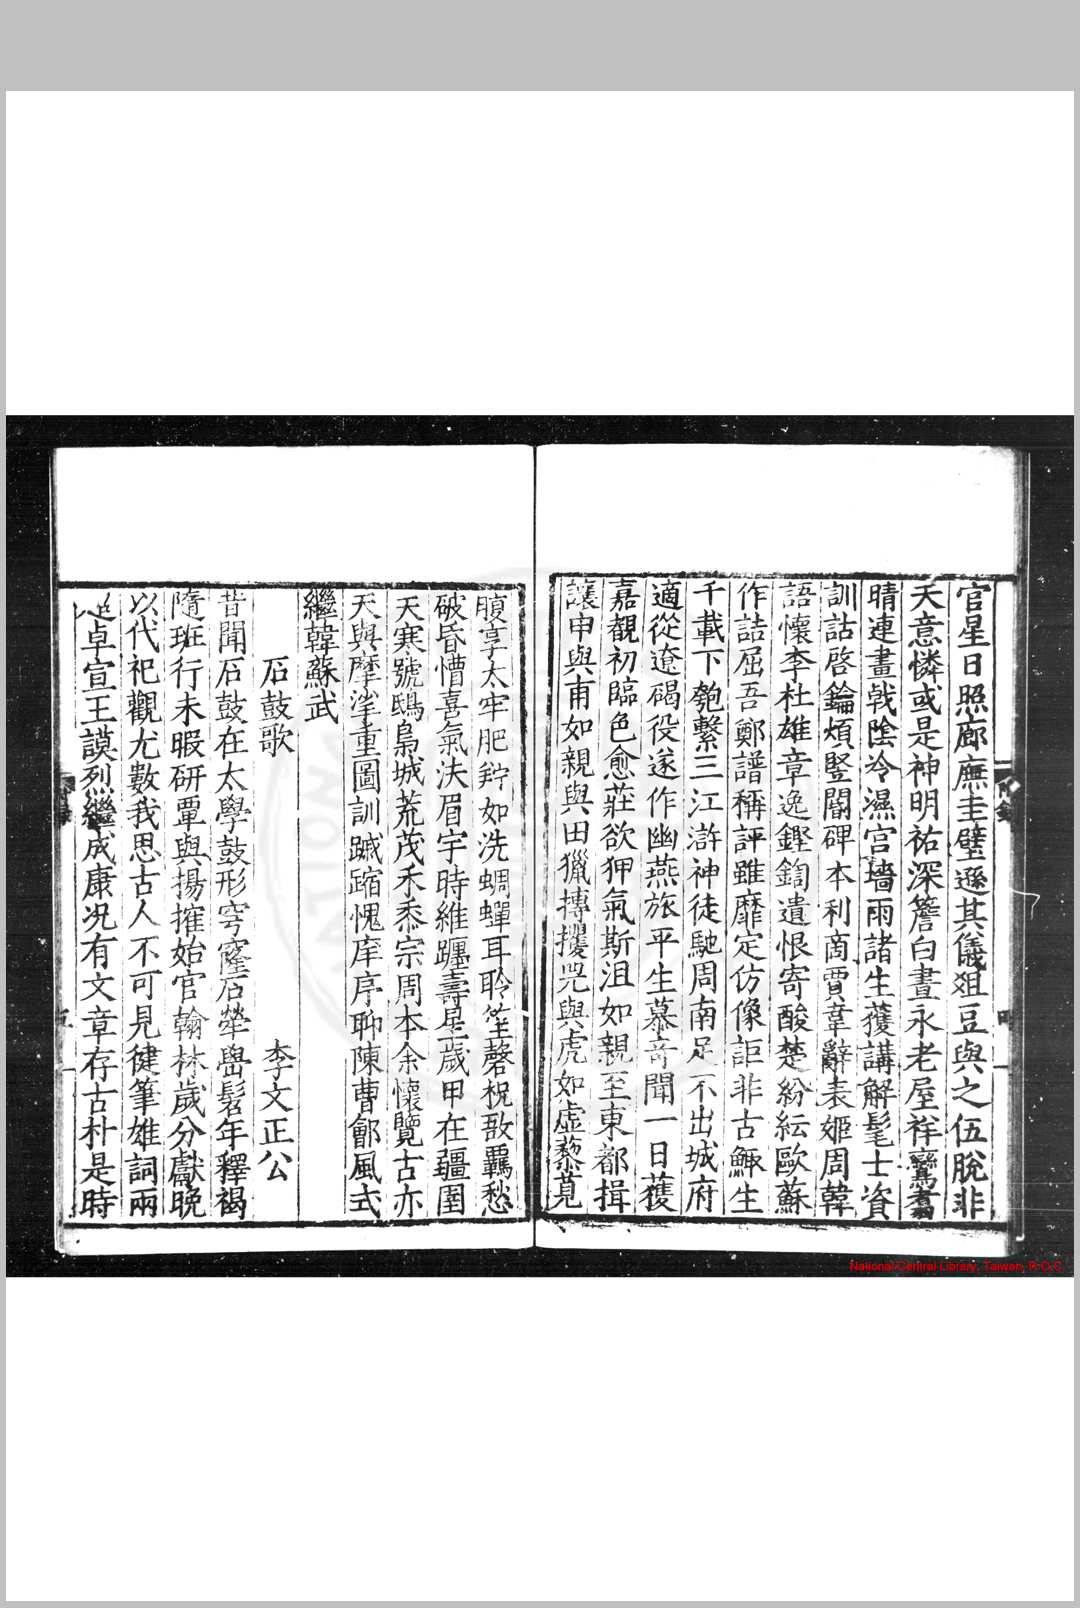 官星日照廊廡圭璧遜其儀爼豆與之伍脫非
天意憐或是神明祐深簷白晝永老屋祥鸞翥
晴連畫戟陰冷濕宫墻雨諸生獲講解髦士資
訓詁啓鑰煩竪閽碑本利商賈韋辭表姬周韓
語懷李杜雄章逸鏗鍧遺恨寄酸楚紛紜歐蘇
作詰屈吾鄭譜稱評雖靡定仿像詎非古鯫生
千載下匏繫三江滸神徒馳周南足不出城府
適從遼碣役遂作幽燕旅平生慕竒聞一日獲
嘉覩初臨色愈莊欲狎氣斯沮如親至東都揖
讓申與甫如親與田獵摶攫兕與虎如虚藜莧
腹享太牢肥羜如洗蜩蟬耳聆笙磬柷敔羈愁
破昏懵喜氣浃眉宇時維躔壽星歲甲在疆圉
天寒號鴟梟城荒茂禾黍宗周本余懷覽古亦
天與摩挲重圖訓踧踖愧庠序聊陳曹鄶風式
繼韓蘇武
石鼓歌 李文正公
昔聞石鼓在太學鼓形穹窿石犖嶨髫年釋褐
隨班行未暇研覃與揚搉始官翰林歲分獻晩
以代祀觀尤數我思古人不可見健筆雄詞兩
卓宣王謨烈繼成康况有文章存古朴是時
National Central Library, Taiwan, R.O.C.